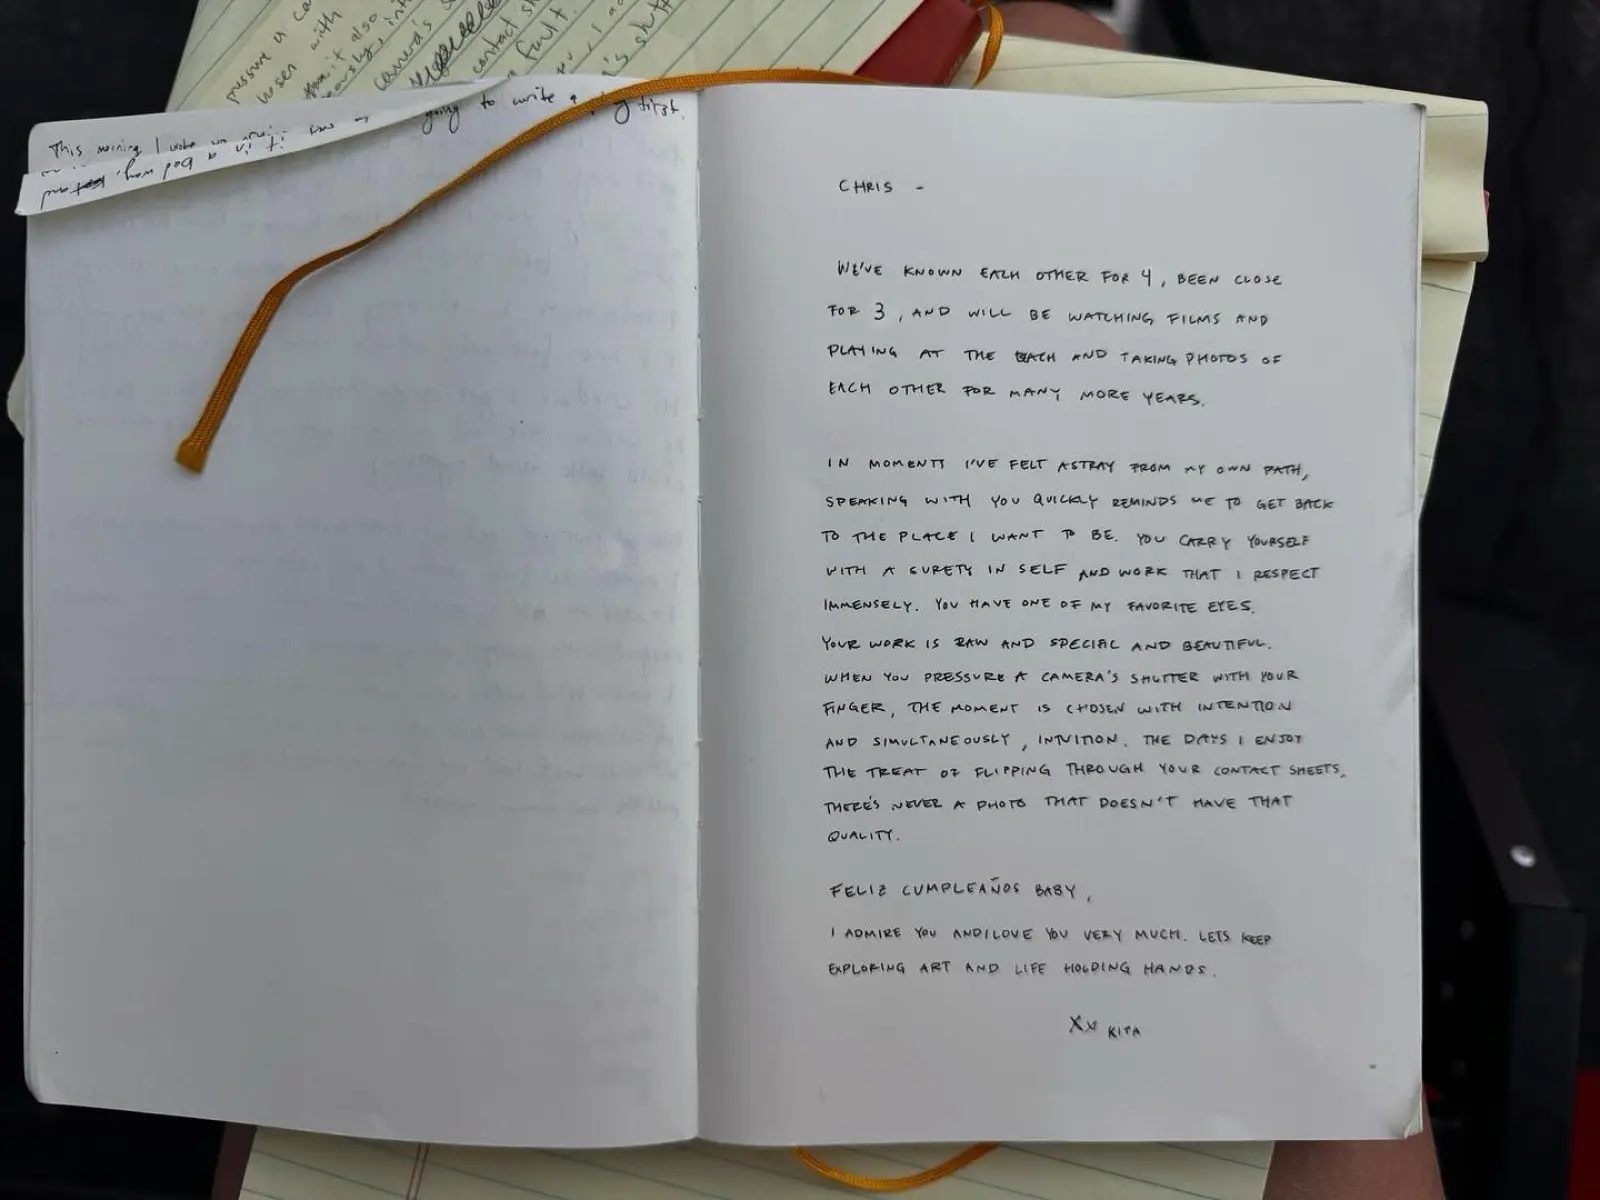 pressure a ca
user with
it also
camera's
contact sh
fault.
This morning I woke
going to write a
it in a bad way, and
CHRIS -
WE'VE KNOWN EACH OTHER FOR 4, BEEN CLOSE
FOR 3, AND WILL BE WATCHING FILMS AND
PLAYING AT THE BEACH AND TAKING PHOTOS OF
EACH OTHER FOR MANY MORE YEARS.
IN MOMENTS I'VE FELT ASTRAY FROM MY OWN PATH,
SPEAKING WITH YOU QUICKLY REMINDS ME TO GET BACK
TO THE PLACE I WANT TO BE. YOU CARRY YOURSELF
WITH A SURETY IN SELF AND WORK THAT I RESPECT
IMMENSELY. YOU HAVE ONE OF MY FAVORITE EYES.
YOUR WORK IS RAW AND SPECIAL AND BEAUTIFUL.
WHEN YOU PRESSURE A CAMERA'S SHUTTER WITH YOUR
FINGER, THE MOMENT IS CHOSEN WITH INTENTION
AND SIMULTANEOUSLY, INTUITION. THE DAYS I ENJOY
THE TREAT OF FLIPPING THROUGH YOUR CONTACT SHEETS,
THERE'S NEVER A PHOTO THAT DOESN'T HAVE THAT
QUALITY.
FELIZ CUMPLEAÑOS BABY,
I ADMIRE YOU AND I LOVE YOU VERY MUCH. LETS KEEP
EXPLORING ART AND LIFE HOLDING HANDS.
XX KITA